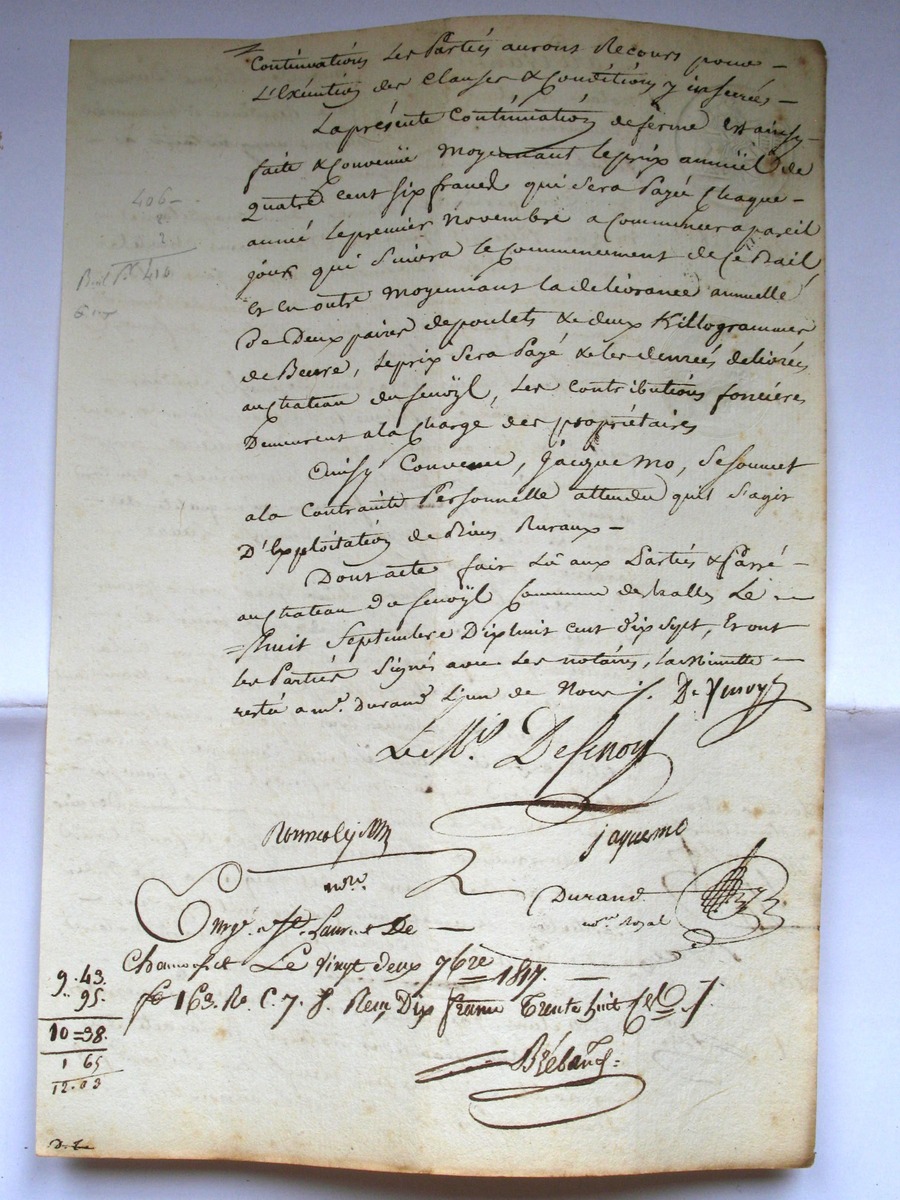 Continuations Les Partiés aurons Recours pour —
L'Exécution des Clauses & Conditions y inserrés —
La présente Continuation de ferme est ainsy
faite & Convenüe Moyennant le prix annüel de
quatre Cent six francs qui sera Payé Chaque —
année le premier Novembre a Commencer a pareil
jour qui Suivra le Commencement de Ce Bail,
Et en outre Moyennant la delivrance annuelle
De Deux paires de poulets & de deux Killogrammes
de Beurre, le prix sera Payé & les denrées delivrées
au Chateau du fenoÿl, Les Contributions foncières
Demeurent a la Charge des propriétaires
Ainsy Convenu, Jacquemo, se soumet
a la Contrainte Personnelle attendu quil s'agit
D'Exploitation de Biens Ruraux —
Dont acte fait Lû aux Partiés & Passé —
au Chateau du fenoÿl Commune des halles Le —
= huit Septembre Dixhuit cent dix sept, Et ont
les Partiés Signés avec Les notaires, La Minutte —
restée a me. durand L'un de Nous /. De fenoyl
Le Mis. De fenoyl
jaquemo
nore.
Durand
nore Royal
Enrgé. a St. Laurent De —
Chamousset Le vingt deux 7bre 1817. —
fo 163. Ro. C. 7. J. Reçu Dix francs Trente huit Ces /.
9. 43
95.
10 = 38.
1 65
12. 03
406 —
2
410